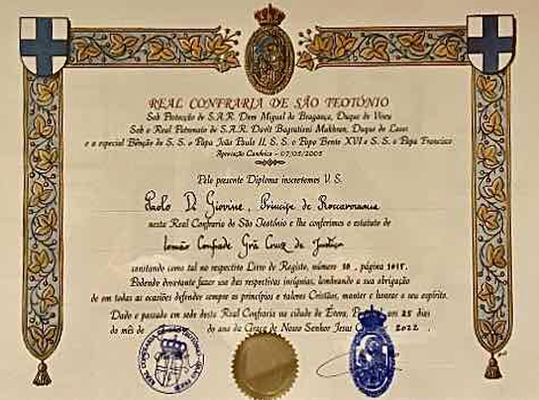 REAL CONFRARIA DE SÃO TEOTÓNIO
Sob Protecção de S.A.R. Dom Miguel de Bragança, Duque de Viseu
Sob o Real Patronato de S.A.R. Davit Bagrationi Mukhran, Duque de Laos
e a especial Bênção de S. S. o Papa João Paulo II, S. S. o Papa Bento XVI e S. S. o Papa Francisco
Aprovação Canónica - 07/05/2005
Pelo presente Diploma inscrevemos V. S.
Paolo Di Giovine, Principe de Roccaromania
nesta Real Confraria de São Teotónio e lhe conferimos o estatuto de
Irmão Confrade Grã Cruz de Justiça
constando como tal no respectivo Livro de Registo, número 10, página
Podendo doravante fazer uso das respectivas insígnias, lembrando a sua obrigação
de em todas as ocasiões defender sempre os princípios e valores Cristãos, manter e honrar o seu espírito.
Dado e passado em sede desta Real Confraria na cidade de Évora, aos 25 dias
do mês de do ano da Graça de Nosso Senhor Jesus 2022
REAL CONFRARIA DE SÃO TEOTÓNIO